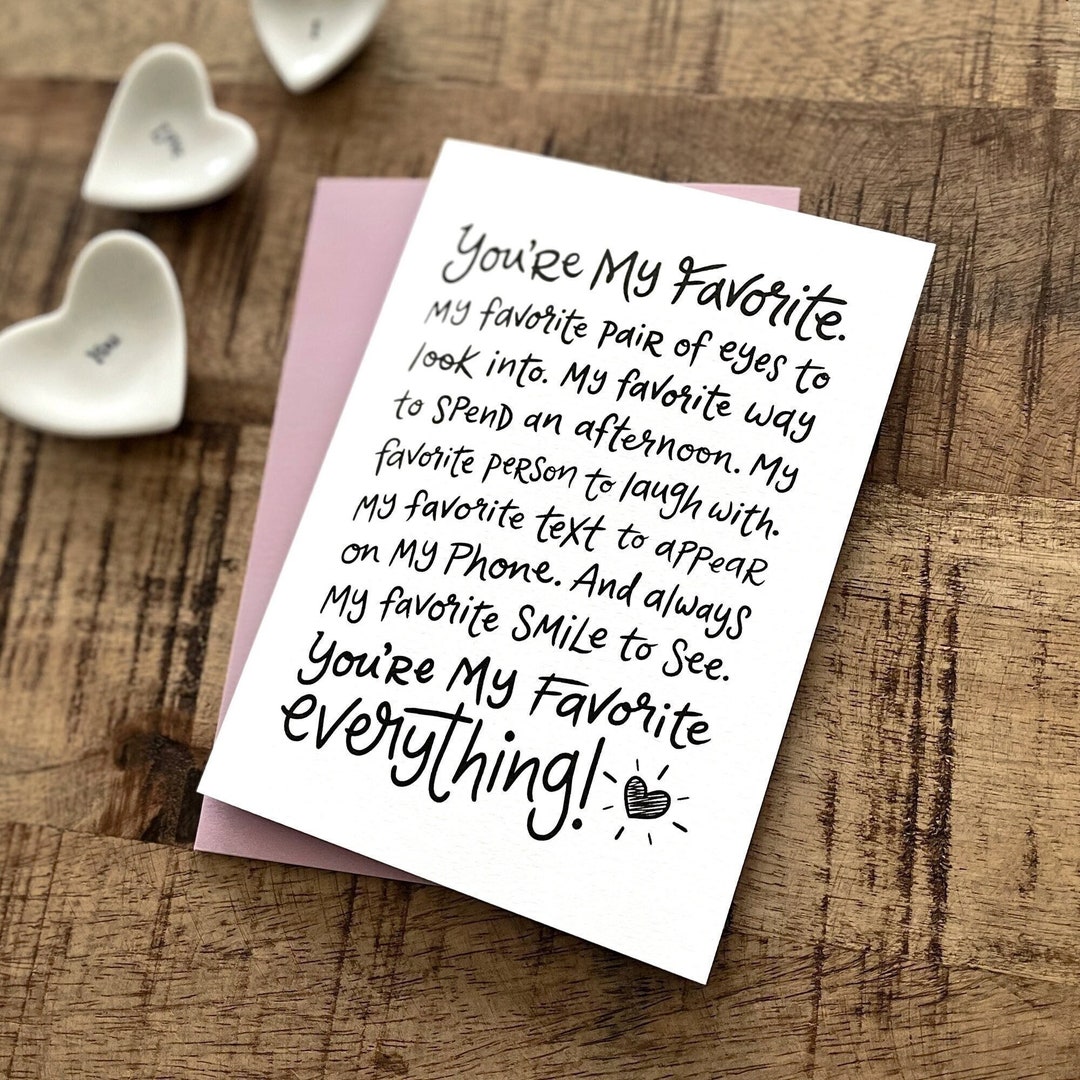 I
love
you
You're My Favorite.
My favorite pair of eyes to
look into. My favorite way
to spend an afternoon. My
favorite person to laugh with.
My favorite text to appear
on my phone. And always
my favorite smile to see.
You're My Favorite
everything!